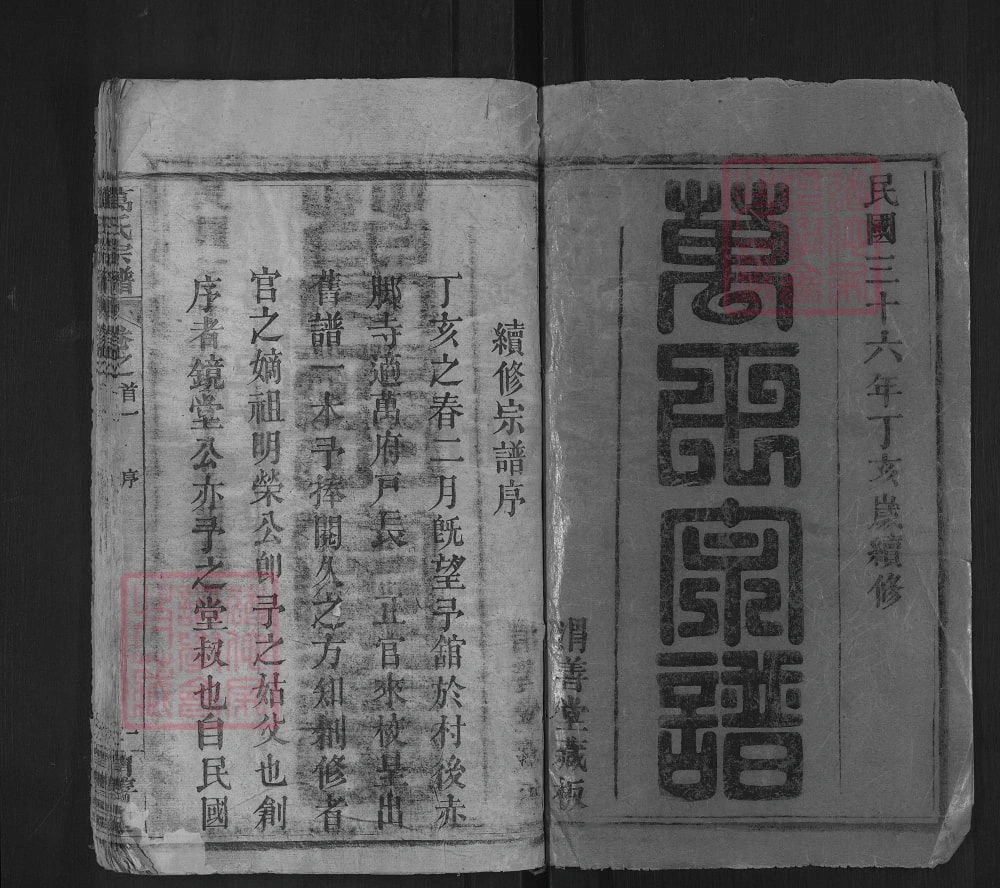 民國三十六年丁亥歲續修
萬氏宗譜
善堂藏板
續修宗譜序
丁亥之春二月旣望予舘於村後赤
脚寺適萬府戸長 正官來校早出
舊譜一本予捧閱久之方知刱修者
官之嫡祖明榮公卽予之姑父也創
序者鏡堂公亦予之堂叔也自民國
萬氏宗譜 卷之首一 序